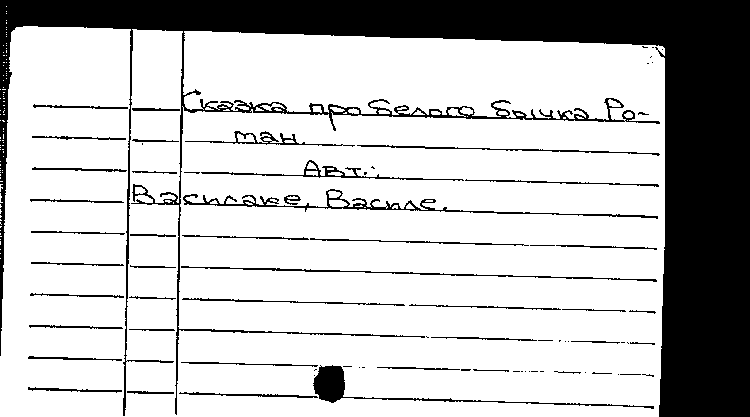 Сказка про белого бычка Ро-
ман.
Авт.:
Василаке, Василе.